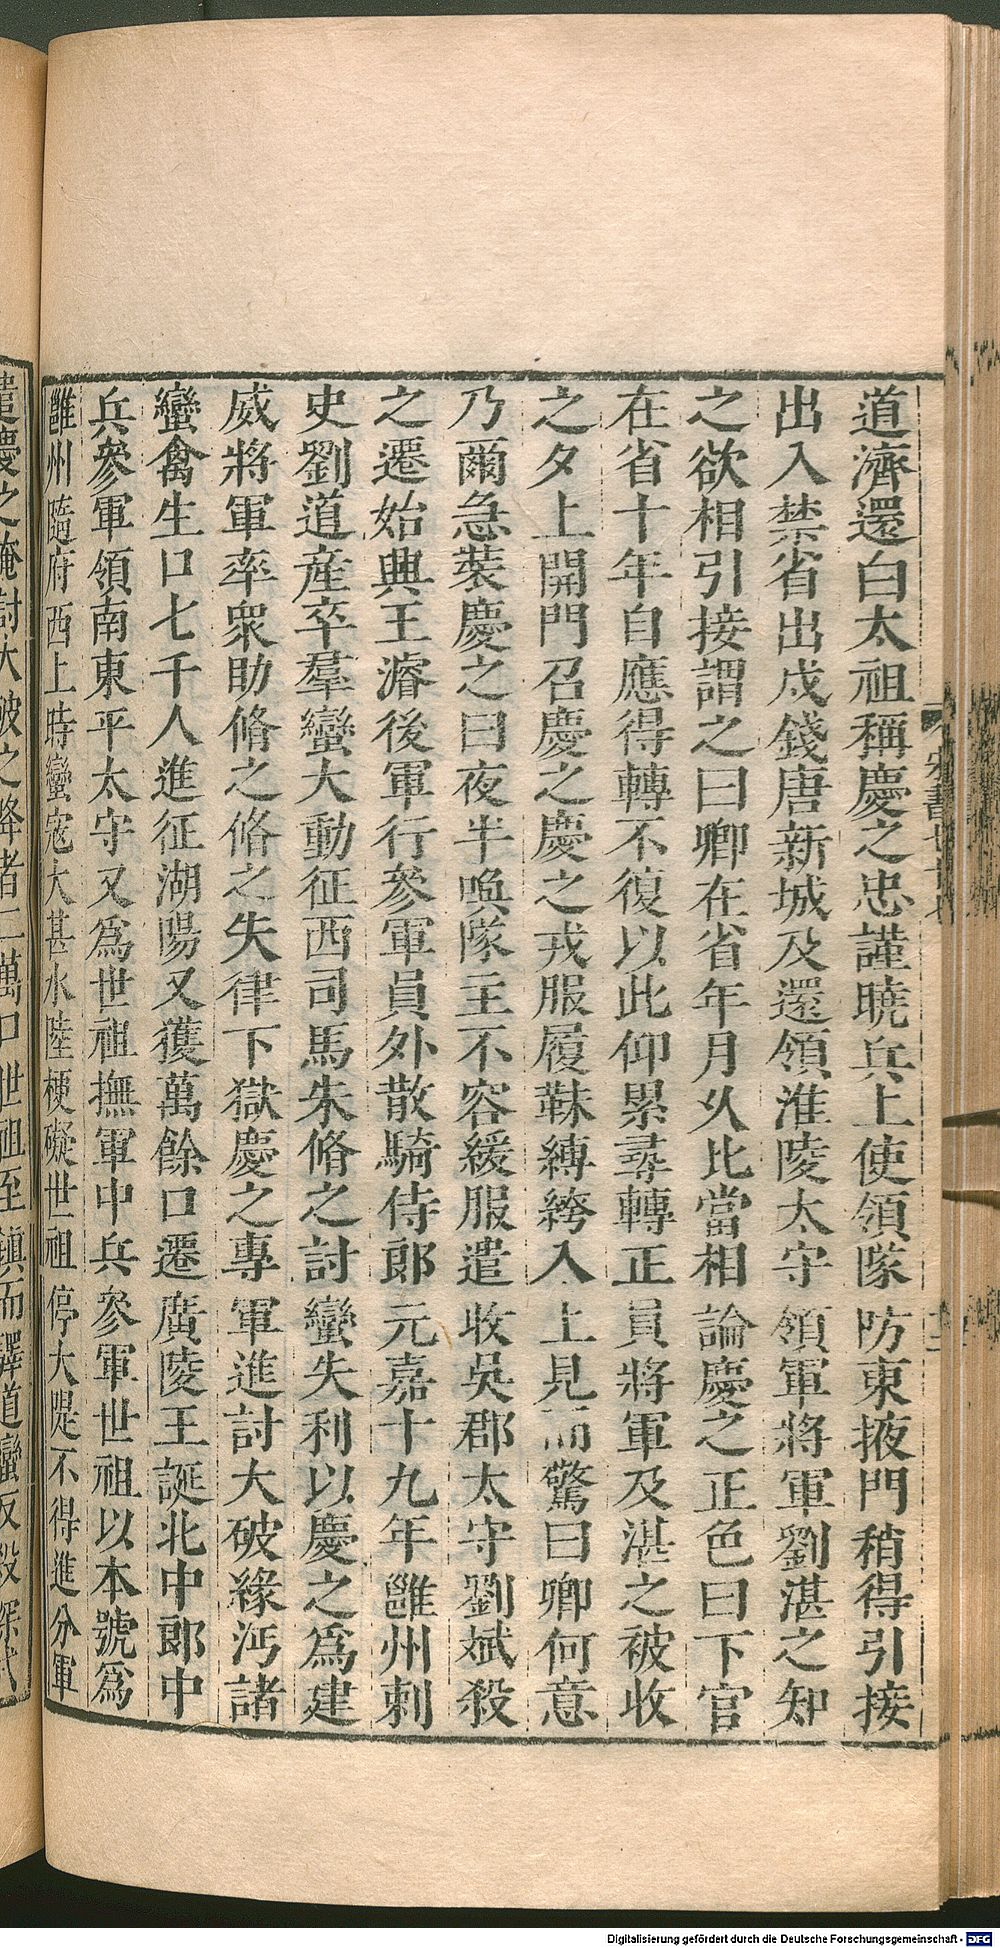 道濟還白太祖稱慶之忠謹曉兵上使領隊防東掖門稍得引接
出入禁省出戍錢唐新城及還領淮陵太守領軍將軍劉湛之知
之欲相引接謂之曰卿在省年月久比當相論慶之正色曰下官
在省十年自應得轉不復以此仰累尋轉正員將軍及湛之被收
之夕上開門召慶之慶之戎服履靺縛絝入上見而驚曰卿何意
乃爾急裝慶之曰夜半喚隊主不容緩服遣收吳郡太守劉斌殺
之遷始興王濬後軍行參軍員外散騎侍郎元嘉十九年雝州刺
史劉道產卒羣蠻大動征西司馬朱脩之討蠻失利以慶之爲建
威將軍率衆助脩之脩之失律下獄慶之專軍進討大破緣沔諸
蠻禽生口七千人進征湖陽又獲萬餘口遷廣陵王誕北中郎中
兵參軍領南東平太守又爲世祖撫軍中兵參軍世祖以本號爲
雝州隨府西上時蠻寇大甚水陸梗礙世祖停大隄不得進分軍
遣慶之掩討大破之降者二萬口世祖至鎮而驛道蠻反殺深式
宋書七十七
Digitalisierung gefördert durch die Deutsche Forschungsgemeinschaft - DFG